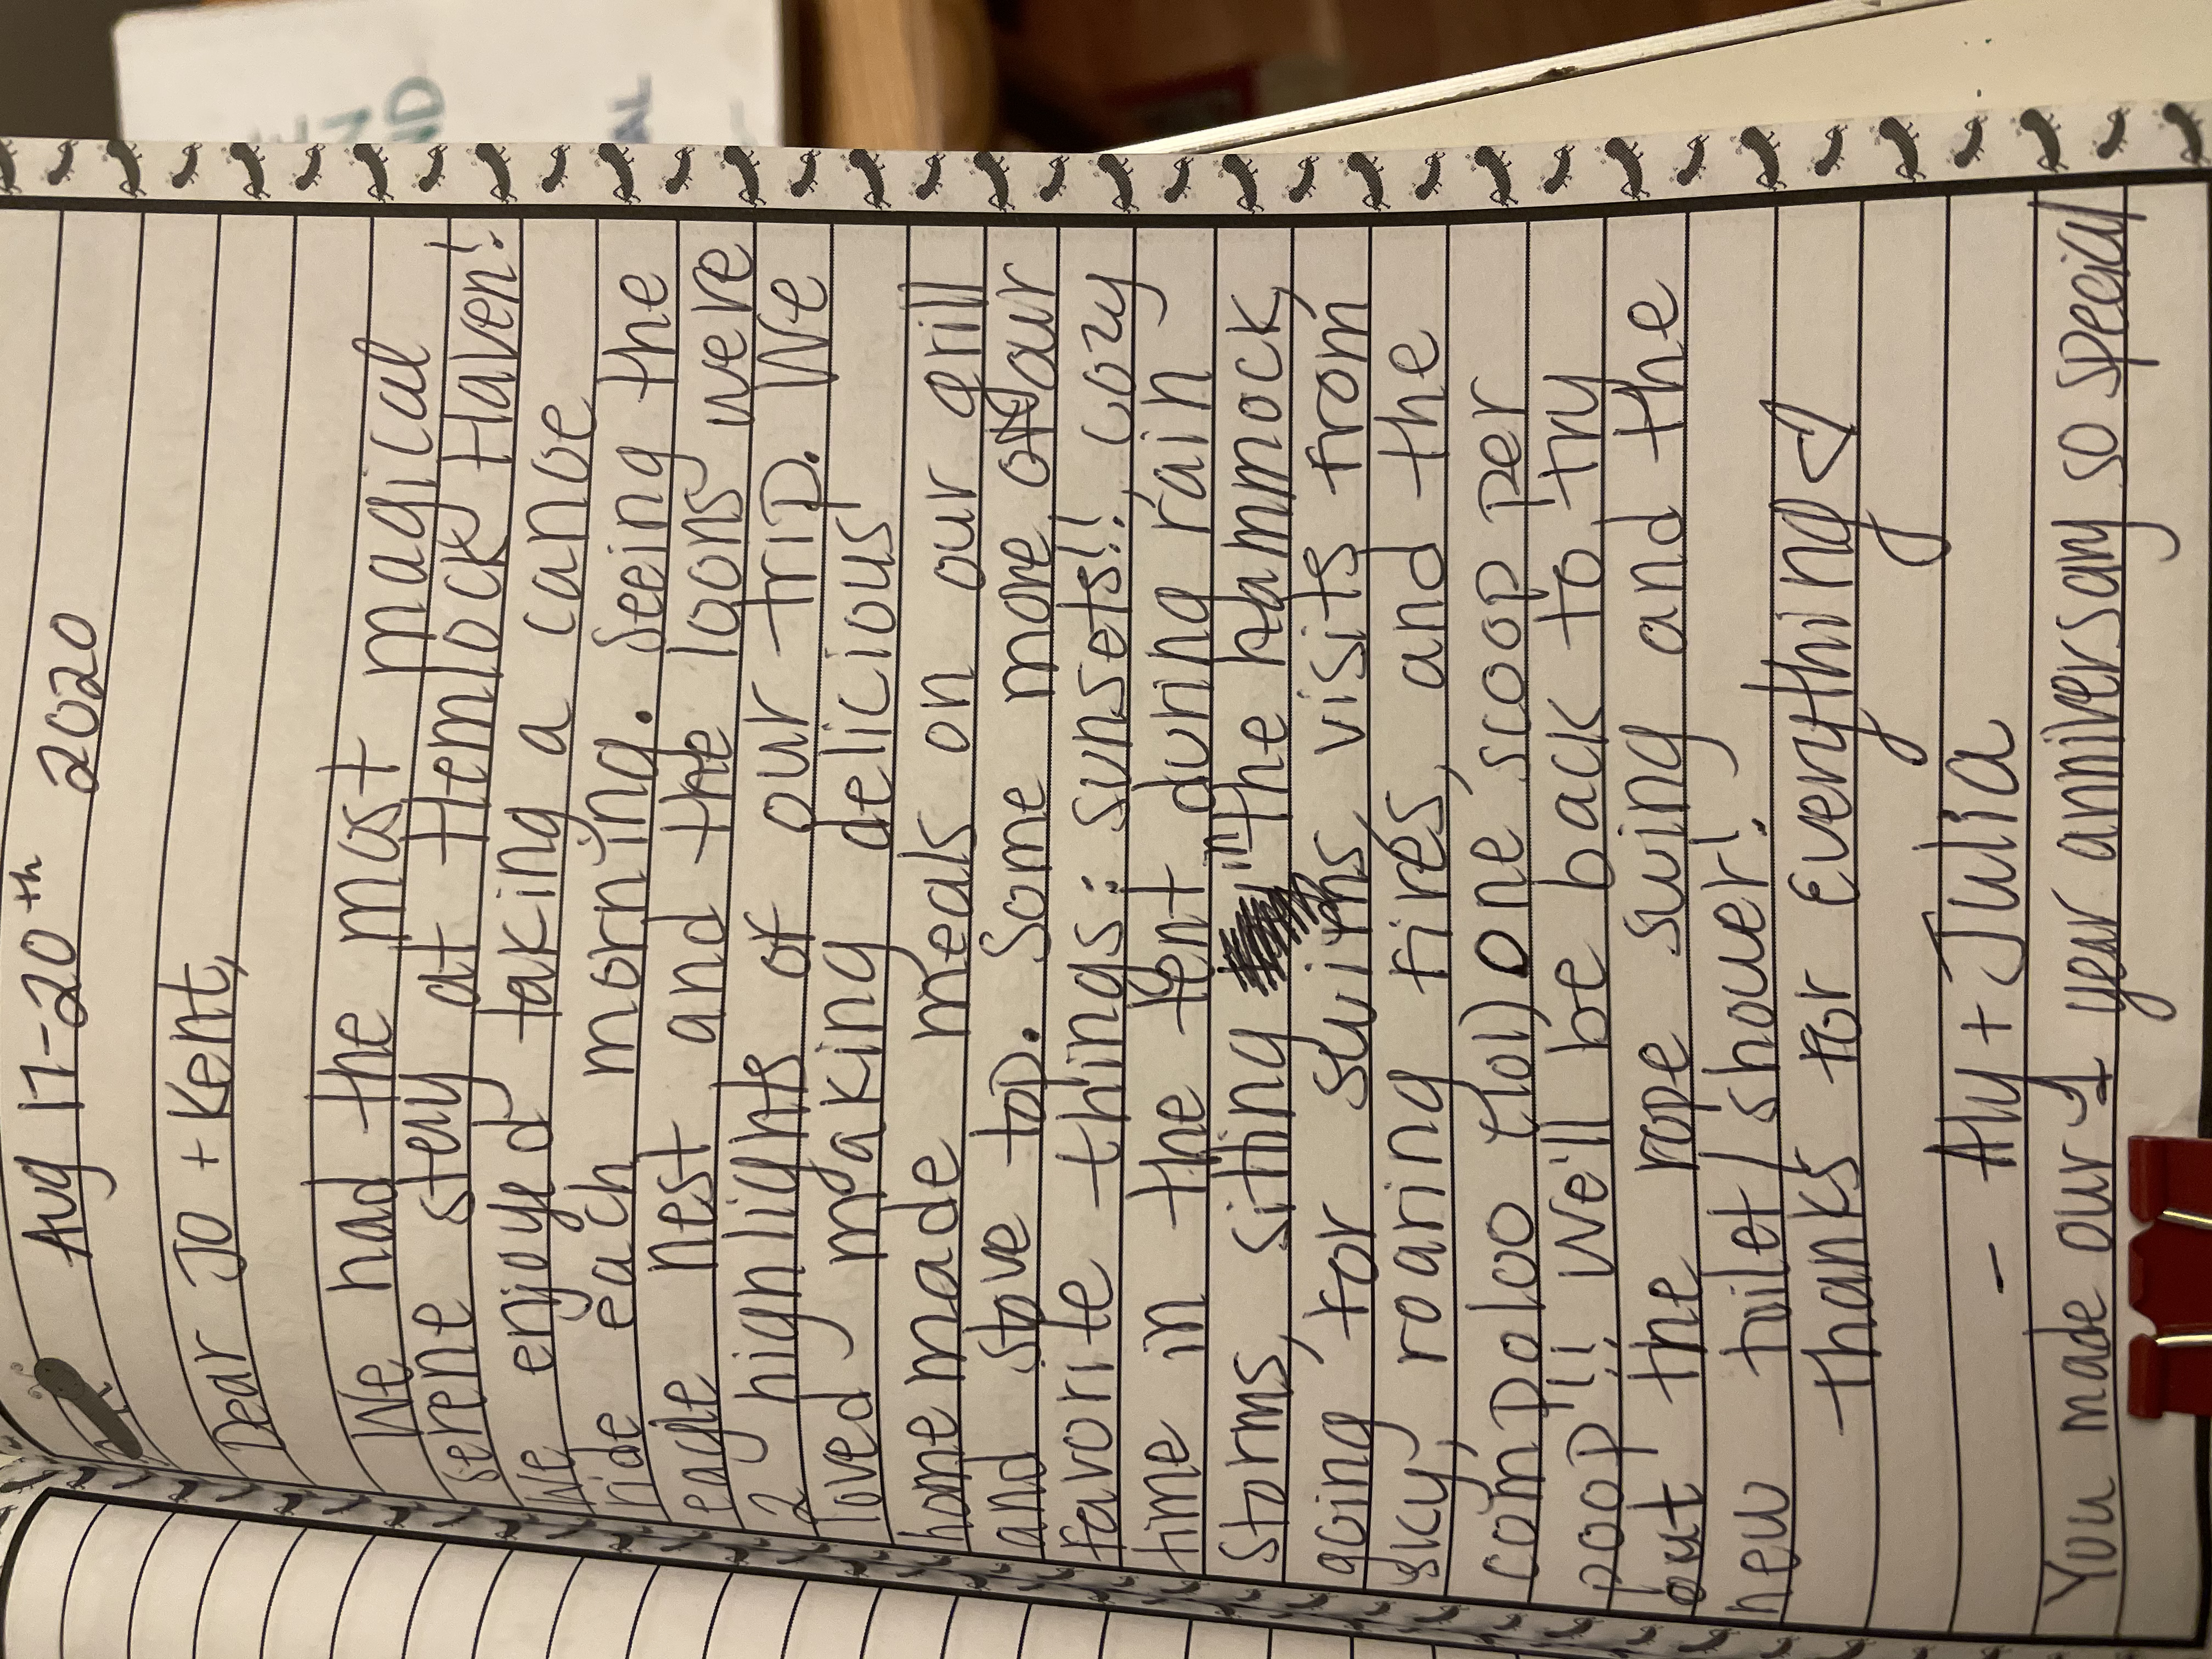 Aug 17-20th 2020
Dear Jo + Kent,
We had the most magical
serene stay at Hemlock Haven!
We enjoyd taking a canoe
ride each morning. Seeing the
eagle nest and the loons were
2 highlights of our trip. We
loved making delicious
homemade meals on our grill
and stove top. Some more of our
favorite things: sunsets!! cozy
time in the tent during rain
storms, sitting in the hammock,
going for swims, visits from
sky, roaring fires, and the
compoloo (lol) one scoop per
poop!!! We'll be back to try
out the rope swing and the
new toilet/shower!
thanks for everything
- Aly + Julia
You made our 1 year anniversary so special
AL